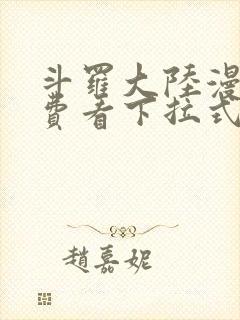 斗羅大陸漫
費看下拉式
趙嘉妮